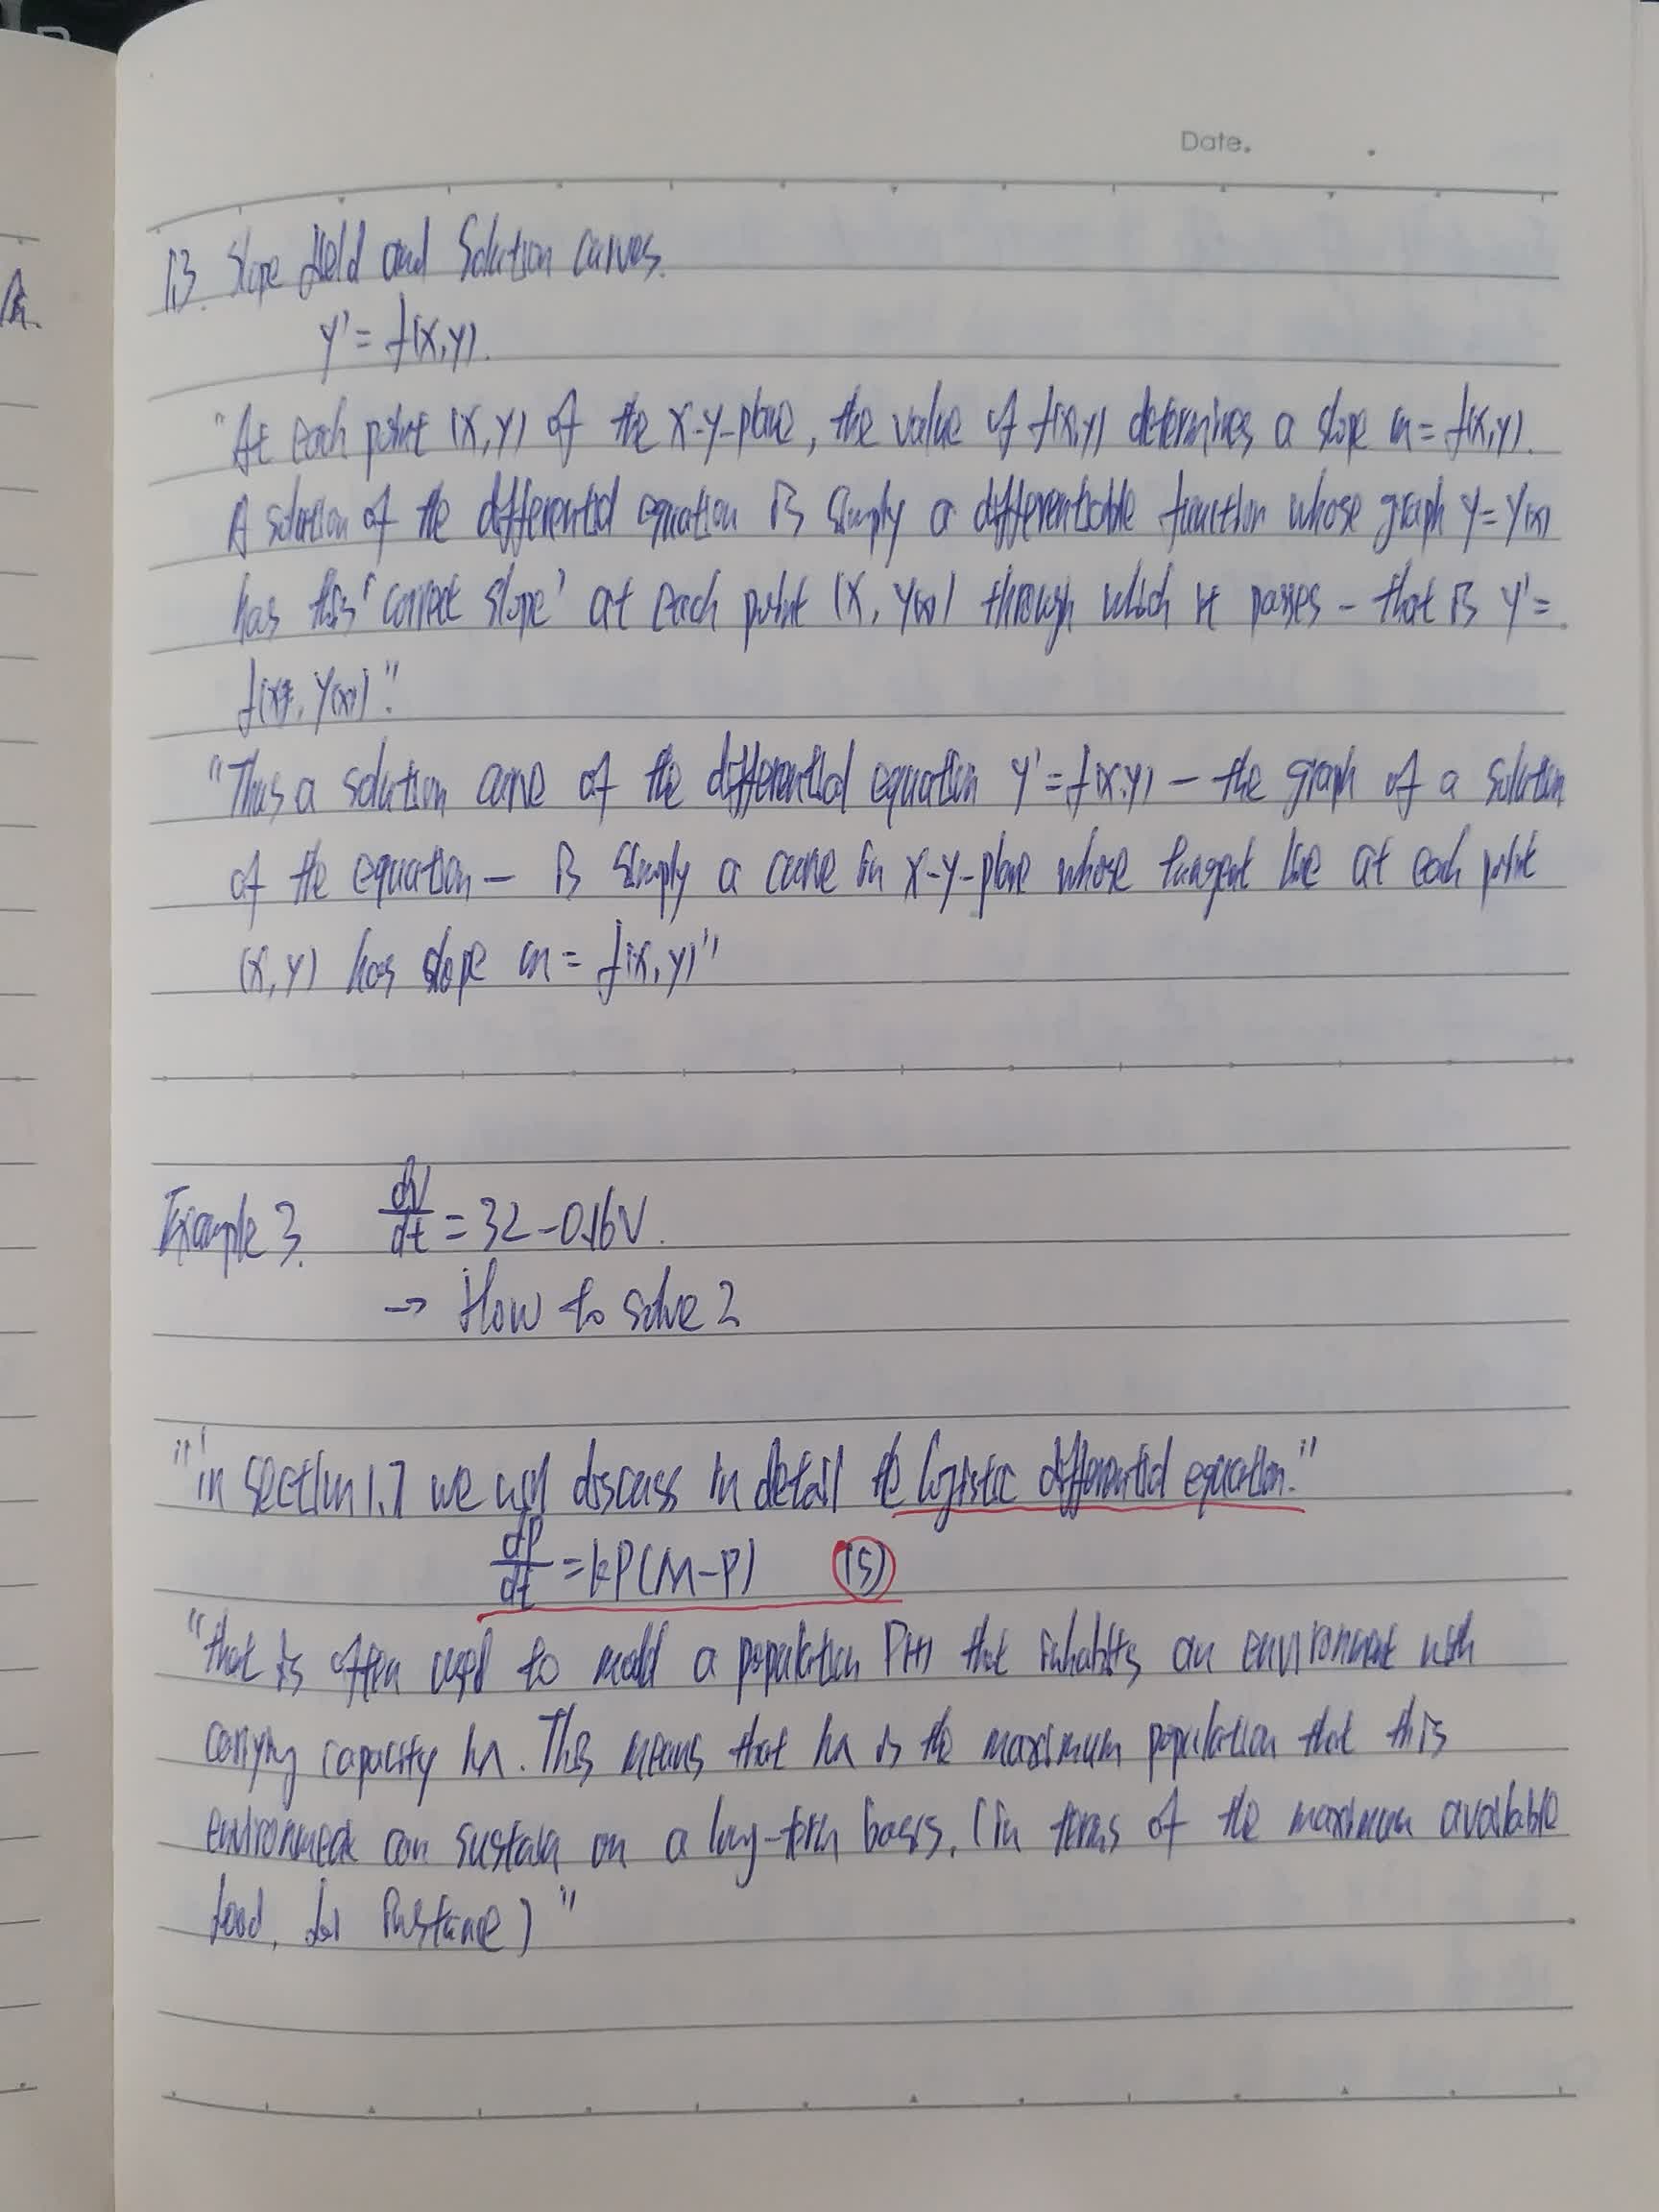 Date.
1.3. Slope field and Solution curves.
y' = f(x,y).
"At each point (x,y) of the x-y-plane, the value of f(x,y) determines a slope m = f(x,y).
A solution of the differential equation is simply a differentiable function whose graph y = y(x)
has this 'correct slope' at each point (x, y(x)) through which it passes - that is y' =
f(x, y(x))."
"Thus a solution curve of the differential equation y' = f(x,y) - the graph of a solution
of the equation - is simply a curve in x-y-plane whose tangent line at each point
(x,y) has slope m = f(x,y)"
Example 3. dv/dt = 32 - 0.16v.
→ How to solve?
"in section 1.7 we will discuss in detail the logistic differential equation."
dP/dt = kP(M-P) (15)
"that is often used to model a population P(t) that inhabits an environment with
carrying capacity M. This means that M is the maximum population that this
environment can sustain on a long-term basis. (in terms of the maximum available
food, for instance)"